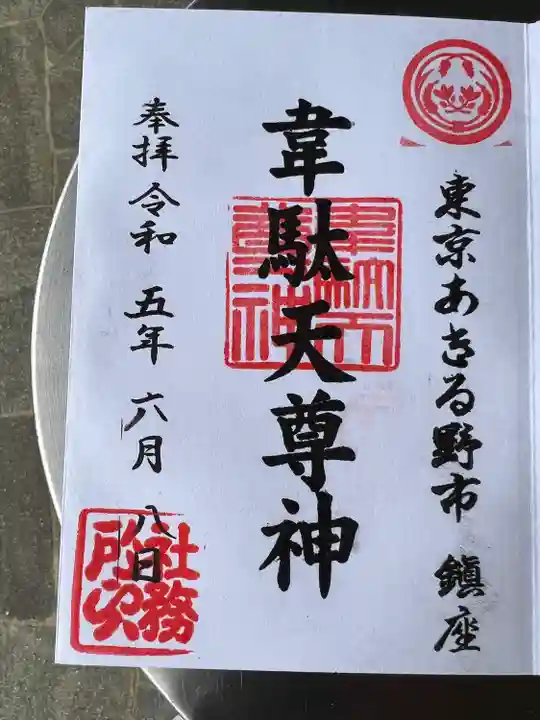 東京あきる野市 鎮座
韋駄天尊神
奉拝 令和 五年 六月 八日
社務所印